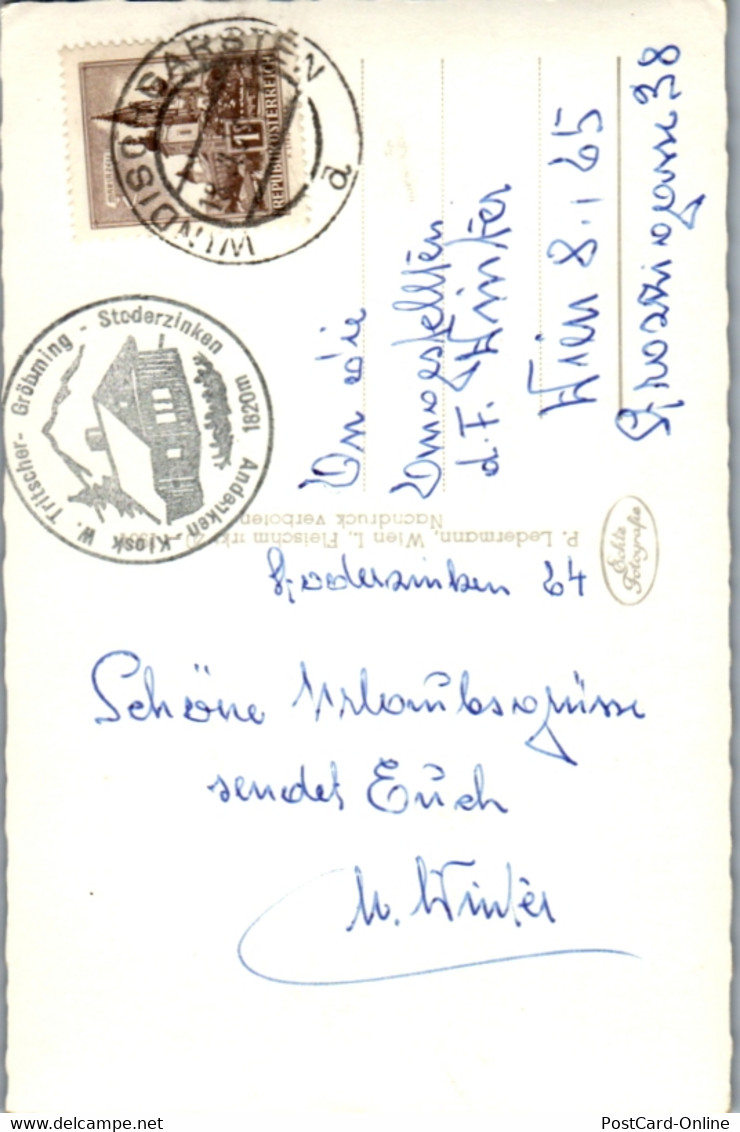 MÜNDISCHGARSTEN
a
1 S
REPUBLIK ÖSTERREICH
W. Tritscher - Gröbming - Stoderzinken 1820m
Andenken - Kiosk
An die
Angestellten
d. F. Winter
Wien 8., 65
38
P. Ledermann, Wien I., Fleischmarkt 20
Nachdruck verboten
Echte
Fotografie
Stoderzinken 64
Schöne Urlaubsgrüsse
sendet Euch
W. Winter
PostCard-Online